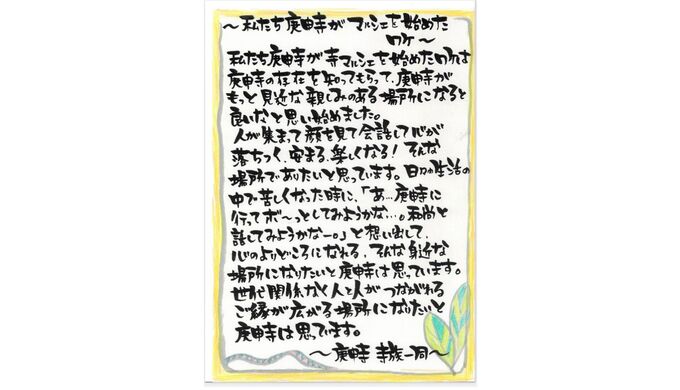 ～私たち庚申寺がマルシェを始めた
ワケ～
私たち庚申寺が寺マルシェを始めたワケは
庚申寺の存在を知ってもらって、庚申寺が
もっと見近な親しみのある場所になると
良いなと思い始めました。
人が集まって顔を見て会話して心が
落ちつく、安まる、楽しくなる！そんな
場所でありたいと思っています。日々の生活の
中で苦しくなった時に、「あ…庚申寺に
行ってボ～っとしてみようかな…。和尚と
話してみようかなー。」と想い出して、
心のよりどころになれる、そんな身近な
場所になりたいと庚申寺は思っています。
世代関係なく人と人がつながれる
ご縁が広がる場所になりたいと
庚申寺は思っています。
～庚申寺 寺族一同～